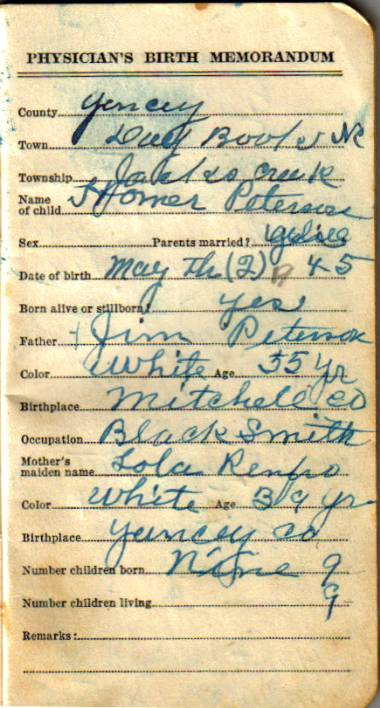 PHYSICIAN'S BIRTH MEMORANDUM
County Yancey
Town
Township Jacks Creek
Name of child Homer Peterson
Sex Parents married? yes
Date of birth May th (2) 45
Born alive or stillborn? yes
Father Jim Peterson
Color White Age 55 yr
Birthplace Mitchell co
Occupation Black Smith
Mother's maiden name Lola Renfro
Color White Age 39 yr
Birthplace Yancey co
Number children born Nine 9
Number children living 9
Remarks: